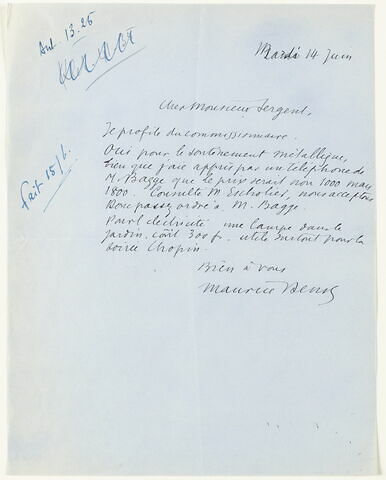 Aut. 13.26
Mardi 14 juin
Cher Monsieur Sergent,
Je profite du commissionnaire.
Oui pour le soutènement métallique,
bien que j'aie appris par un téléphone de
M. Bagge que le prix serait non 1000 mais
1800. Consulté M. nous acceptons
Donc passez ordre à M. Bagge.
Pour l'électricité une lampe dans le
jardin, coût 300 fr. utile surtout pour la
soirée Chopin.
Bien à vous
Maurice Denis
fait 15/6.